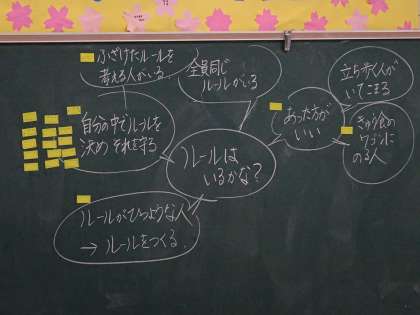 ふざけたルールを
考える人がいる
全員同じ
ルールがいる
立ち歩く人が
いてこまる
自分の中でルールを
決め それを守る
あった方が
いい
きゅう食の
ワゴンに
のる人
ルールは
いるかな?
ルールがひつような人
→ ルールをつくる